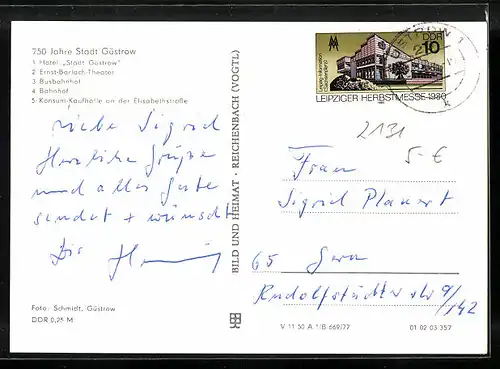 750 Jahre Stadt Güstrow
1 Hotel „Stadt Güstrow"
2 Ernst-Barlach-Theater
3 Busbahnhof
4 Bahnhof
5 Konsum-Kaufhalle an der Elisabethstraße
Liebe Sigrid
Herzliche Grüße
und alles Gute
sendet + wünscht
Dir
Foto: Schmidt, Güstrow
DDR 0,25 M
BILD UND HEIMAT · REICHENBACH (VOGTL)
DDR
10
Leipzig-Information
Sachsenplatz
LEIPZIGER HERBSTMESSE 1980
2131
5-€
Frau
Sigrid Planert
65 Gera
Rudolfstädter Str 9/142
V 11 50 A 1/B 669/77
01 02 03 357